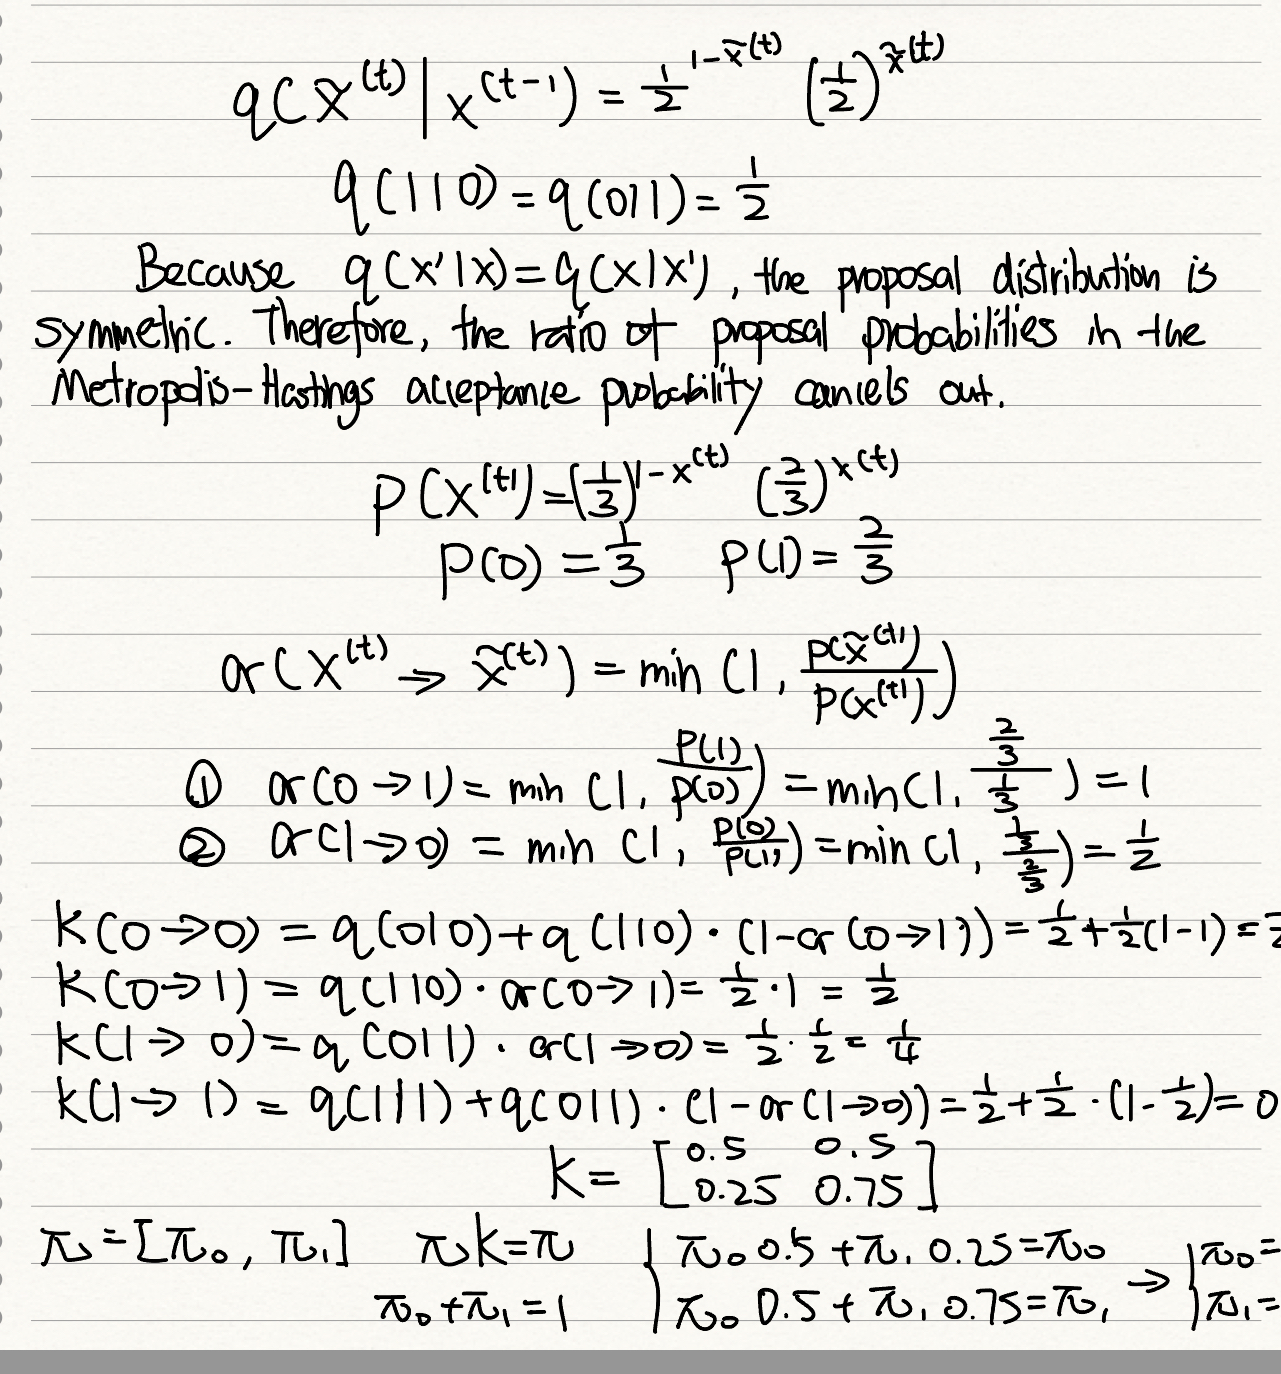 q(x̃^(t) | x^(t-1)) = 1/2^(1-x̃^(t)) (1/2)^(x̃^(t))
q(1|0) = q(0|1) = 1/2
Because q(x'|x) = q(x|x'), the proposal distribution is
symmetric. Therefore, the ratio of proposal probabilities in the
Metropolis-Hastings acceptance probability cancels out.
P(x^(t)) = (1/3)^(1-x^(t)) (2/3)^(x^(t))
P(0) = 1/3 P(1) = 2/3
α(x^(t) → x̃^(t)) = min(1, P(x̃^(t))/P(x^(t)))
① α(0→1) = min(1, P(1)/P(0)) = min(1, (2/3)/(1/3)) = 1
② α(1→0) = min(1, P(0)/P(1)) = min(1, (1/3)/(2/3)) = 1/2
K(0→0) = q(0|0) + q(1|0) · (1-α(0→1)) = 1/2 + 1/2(1-1) =
K(0→1) = q(1|0) · α(0→1) = 1/2 · 1 = 1/2
K(1→0) = q(0|1) · α(1→0) = 1/2 · 1/2 = 1/4
K(1→1) = q(1|1) + q(0|1) · (1-α(1→0)) = 1/2 + 1/2 · (1-1/2) = 0
K = [0.5 0.5
0.25 0.75]
π = [π₀, π₁] πK = π { π₀ 0.5 + π₁ 0.25 = π₀ → { π₀ =
π₀ + π₁ = 1 π₀ 0.5 + π₁ 0.75 = π₁ π₁ =